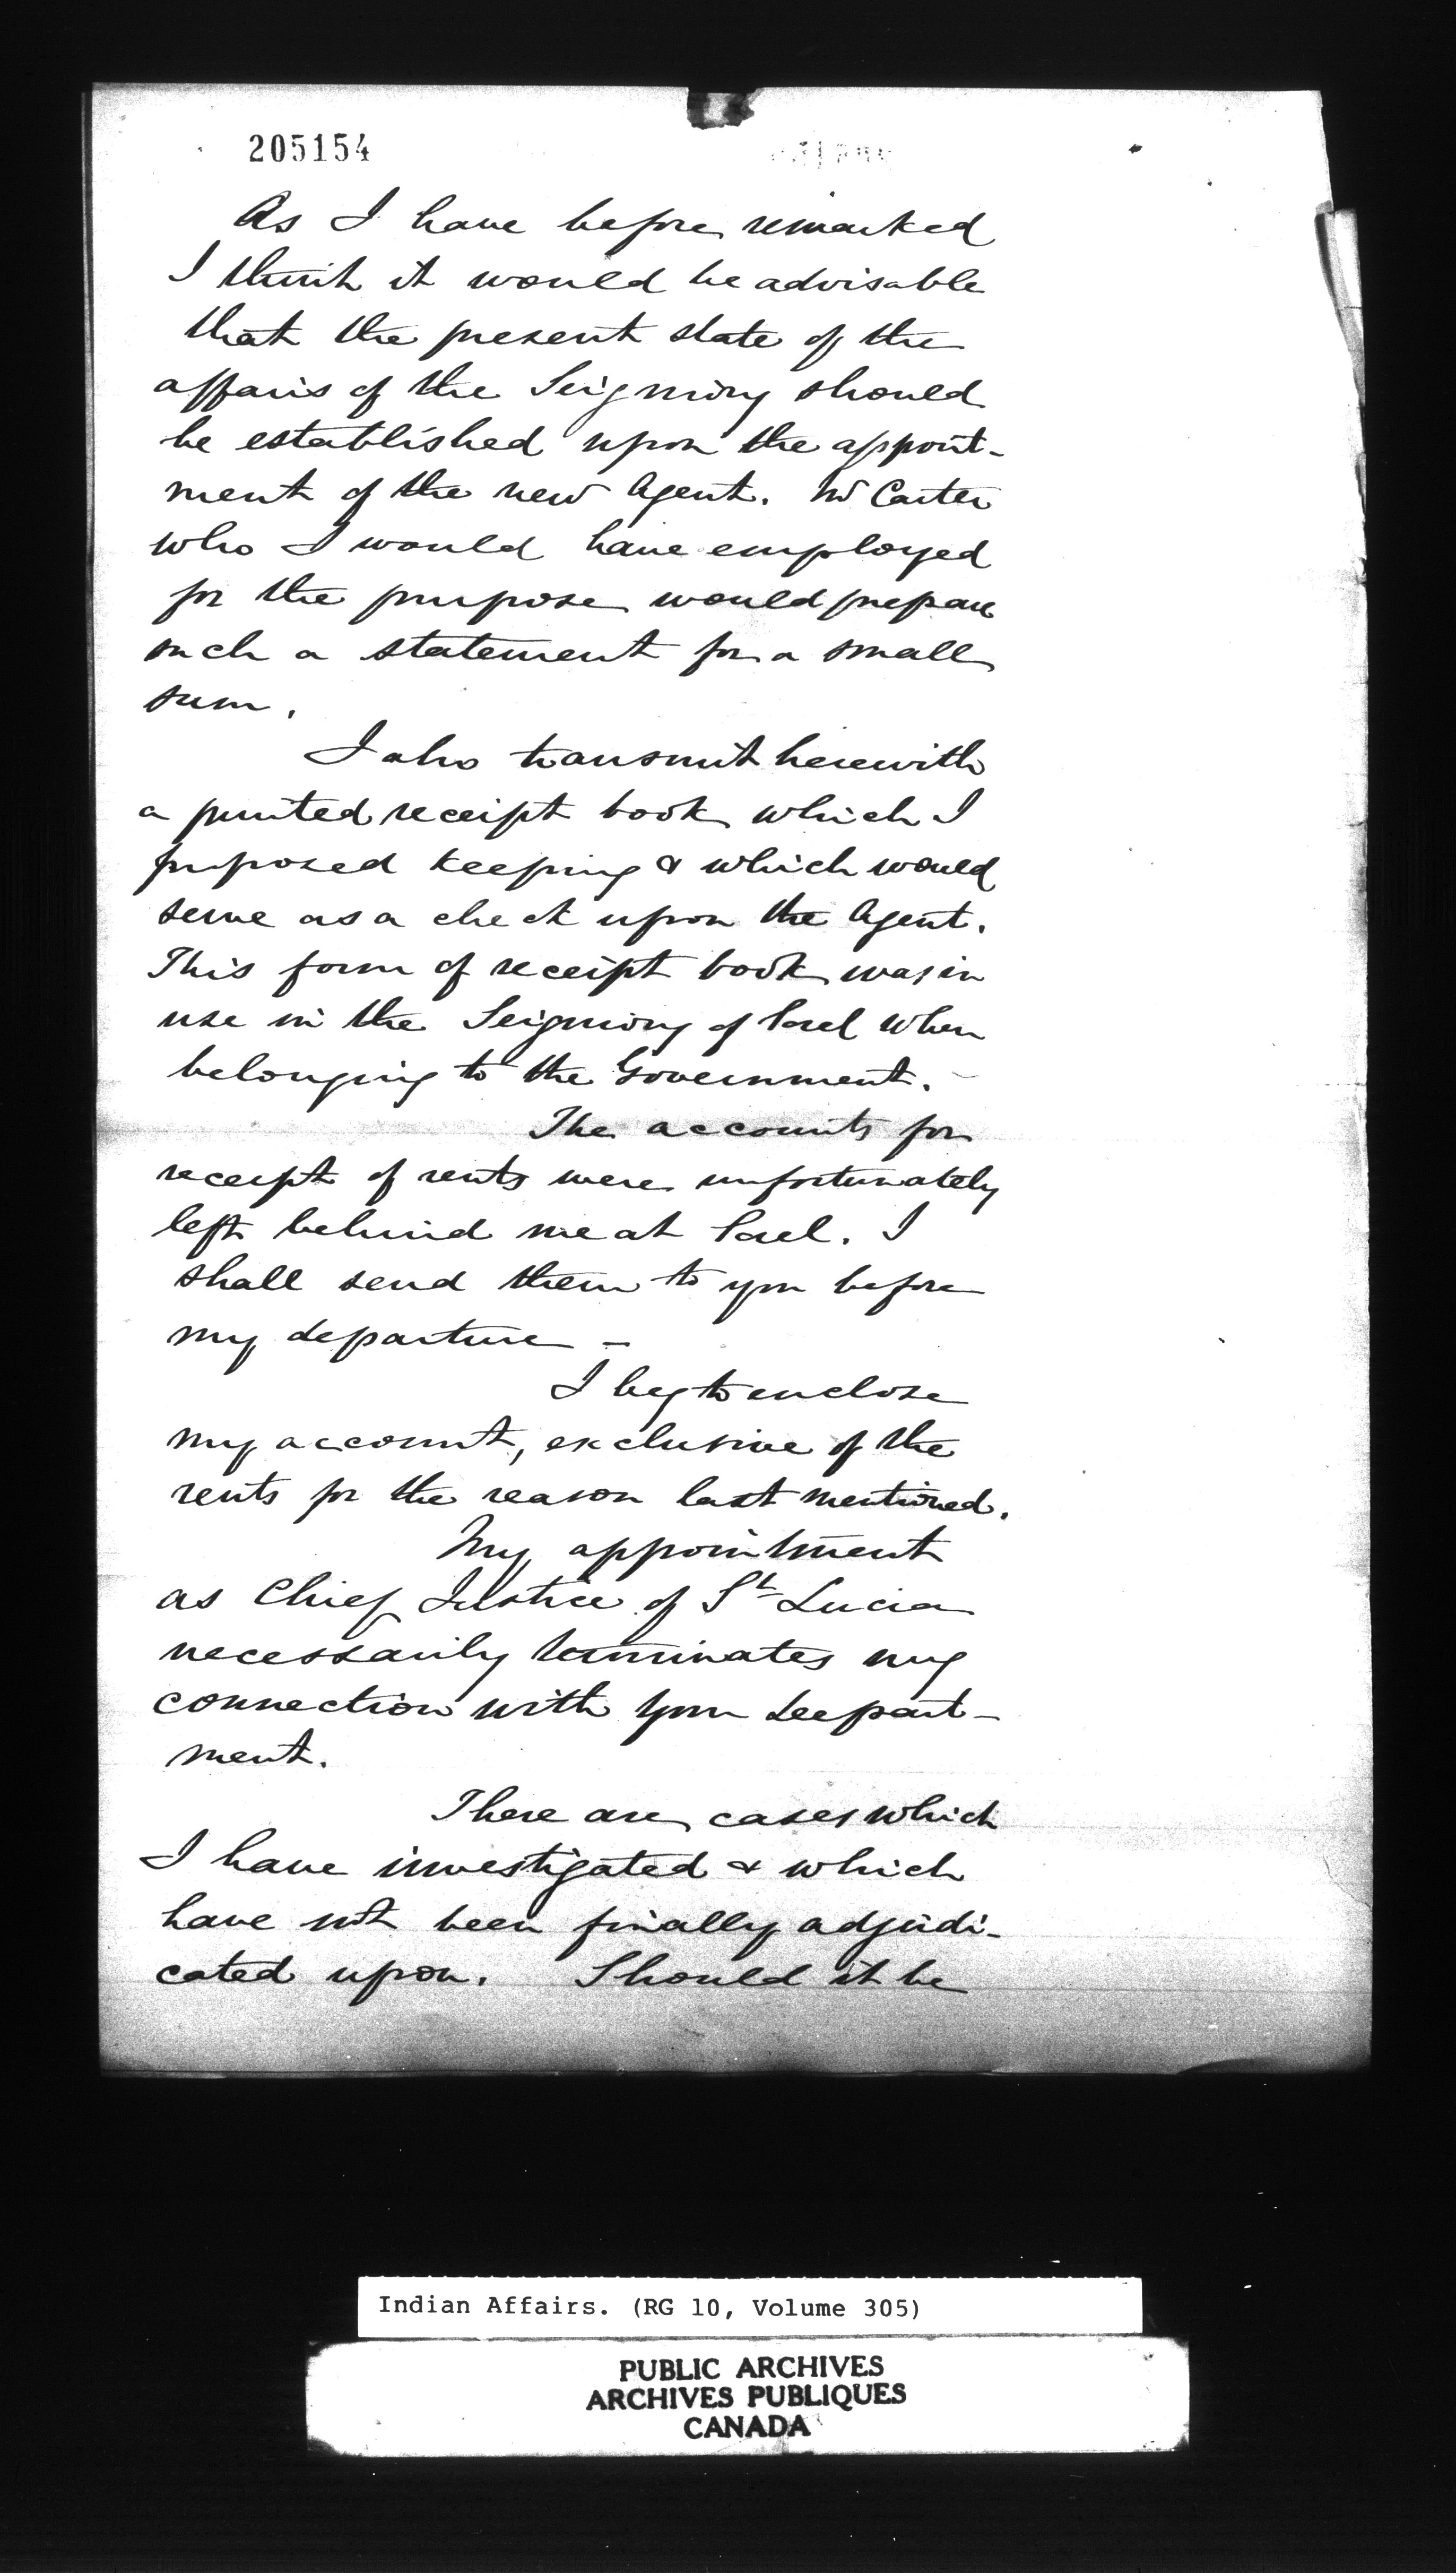 205154
As I have before remarked
I think it would be advisable
that the present state of the
affairs of the Seigniory should
be established upon the appoint-
ment of the new Agent. Mr Carter
who I would have employed
for the purpose would prepare
such a statement for a small
sum.
I also transmit herewith
a printed receipt book which I
proposed keeping & which would
serve as a check upon the Agent.
This form of receipt book was in
use in the Seigniory of Sorel when
belonging to the Government. -
The accounts for
receipt of rents were unfortunately
left behind me at Sorel. I
shall send them to you before
my departure -
I beg to enclose
my account, exclusive of the
rents for the reason last mentioned.
My appointment
as Chief Justice of St Lucia
necessarily terminates my
connection with your Deepart-
ment.
There are cases which
I have investigated & which
have not been finally adjudi-
cated upon. Should it be
Indian Affairs. (RG 10, Volume 305)
PUBLIC ARCHIVES
ARCHIVES PUBLIQUES
CANADA